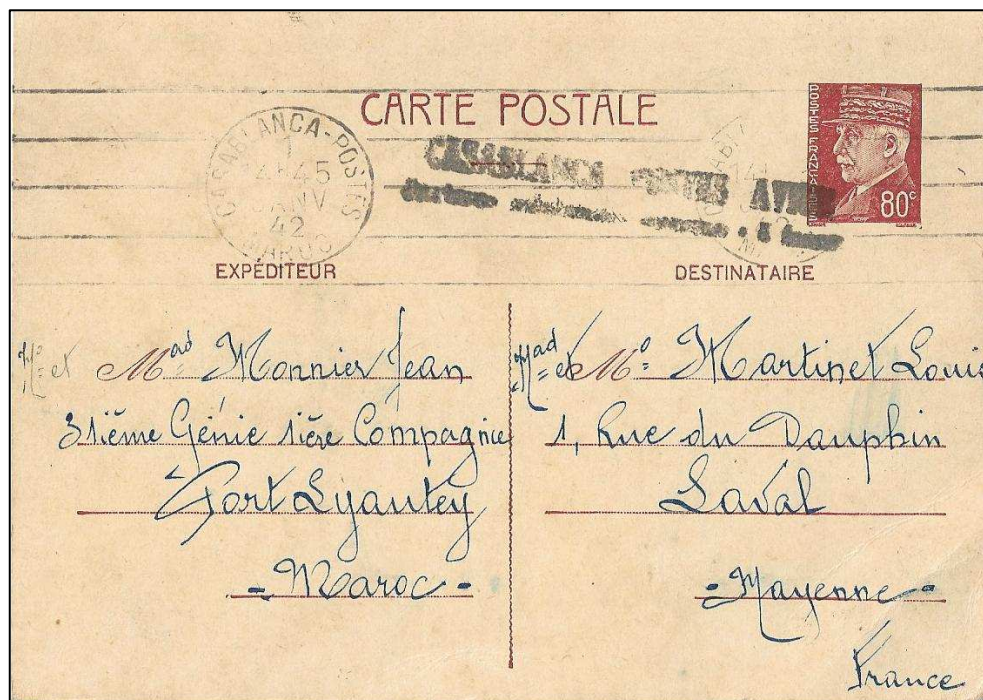 CARTE POSTALE
CASABLANCA-POSTES
45
42
MAROC
CASABLANCA
POSTES FRANÇAISES
80c
EXPÉDITEUR
Mr et Mad Monnier Jean
31ième Génie 1ière Compagnie
Port Lyautey
- Maroc -
DESTINATAIRE
Mad et Mr Martinet Louis
1, Rue du Dauphin
Laval
- Mayenne -
France